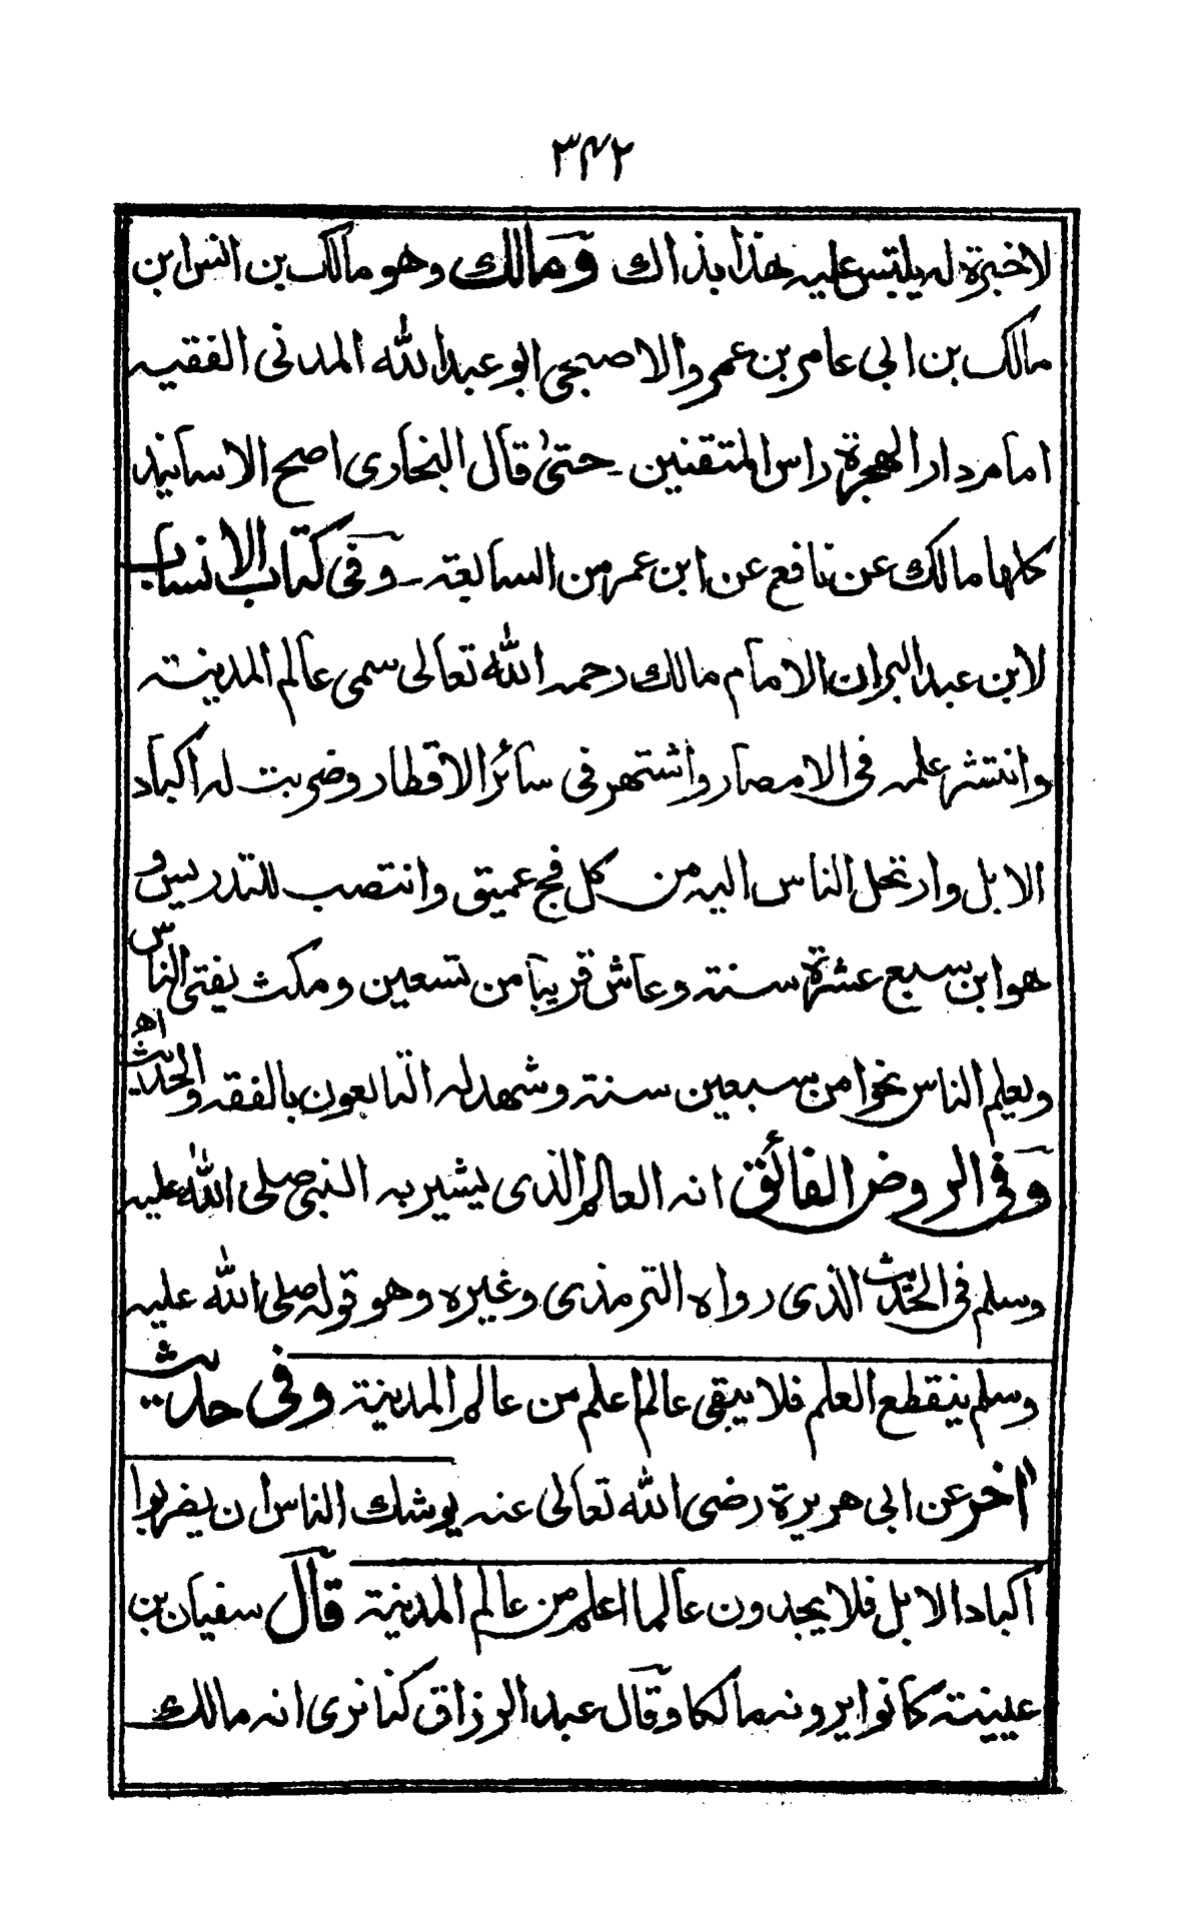 ۳۴۲
لا خبرة له يلتبس عليه هذا بذاك ومالك وهو مالك بن انس ابن
مالك بن ابي عامر بن عمرو الاصبحي ابو عبد الله المدنى الفقيه
امام دار الهجرة راس المتقنين ـ حتىٰ قال البخارى اصح الاسانيد
كلها مالك عن نافع عن ابن عمر من السابعة ـ وفى كتاب الانساب
لابن عبد البر ان الامام مالك رحمه الله تعالى سمى عالم المدينة
وانتشر علمه فى الامصار واشتهر فى سائر الاقطار وضربت له اكباد
الابل وارتحل الناس اليه من كل فج عميق وانتصب للتدريس و
هو ابن سبع عشرة سنة وعاش قريبا من تسعين ومكث يفتى الناس
ويعلم الناس نحوا من سبعين سنة وشهد له التابعون بالفقه والحديث اه
وفى الروض الفائق انه العالم الذى يشير به النبى صلى الله عليه
وسلم فى الحديث الذى رواه الترمذى وغيره وهو قوله صلى الله عليه
وسلم ينقطع العلم فلا يبقى عالم اعلم من عالم المدينة وفى حديث
اخر عن ابى هريرة رضى الله تعالى عنه يوشك الناس ان يضربوا
اكباد الابل فلا يجدون عالما اعلم من عالم المدينة قال سفيان بن
عيينة كانوا يرونه مالكا وقال عبد الرزاق كنا نرى انه مالك